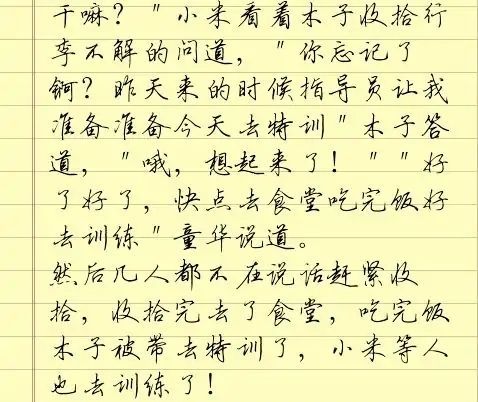 干嘛？"小米看着木子收拾行
李不解的问道，"你忘记了
锕？昨天来的时候指导员让我
准备准备今天去特训"木子答
道，"哦，想起来了！""好
了好了，快点去食堂吃完饭好
去训练"童华说道。
然后几人都不在说话赶紧收
拾，收拾完去了食堂，吃完饭
木子被带去特训了，小米等人
也去训练了！